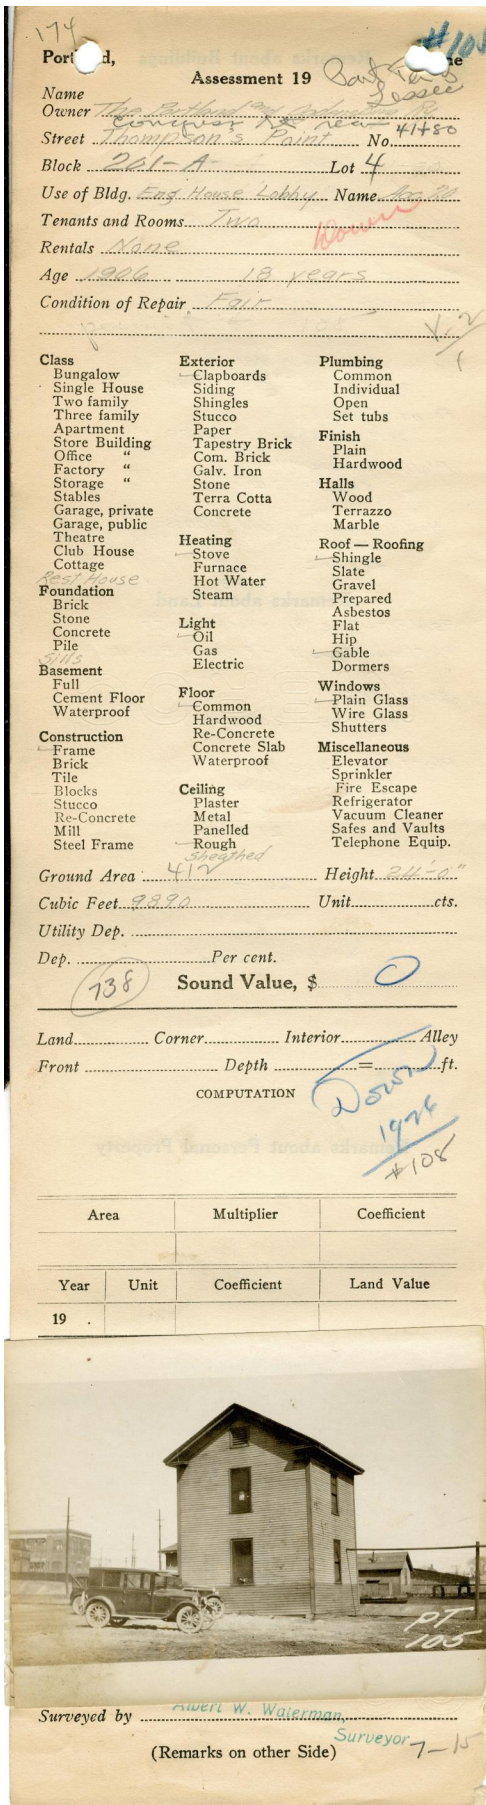 174
#108
Portland, Maine
Assessment 19
Lessee
Name
Owner The Portland and Ogdensburg Ry
41480
Street Thompson's Point No.
Block 201-A Lot 4
Use of Bldg. Eng House Lobby Name
Tenants and Rooms Two
Down
Rentals None
Age 1906 18 years
Condition of Repair Fair
Class
Bungalow
Single House
Two family
Three family
Apartment
Store Building
Office "
Factory "
Storage "
Stables
Garage, private
Garage, public
Theatre
Club House
Cottage
Rest House
Foundation
Brick
Stone
Concrete
Pile
Sills
Basement
Full
Cement Floor
Waterproof
Construction
Frame
Brick
Tile
Blocks
Stucco
Re-Concrete
Mill
Steel Frame
Exterior
Clapboards
Siding
Shingles
Stucco
Paper
Tapestry Brick
Com. Brick
Galv. Iron
Stone
Terra Cotta
Concrete
Heating
Stove
Furnace
Hot Water
Steam
Light
Oil
Gas
Electric
Floor
Common
Hardwood
Re-Concrete
Concrete Slab
Waterproof
Ceiling
Plaster
Metal
Panelled
Rough
Sheathed
Plumbing
Common
Individual
Open
Set tubs
Finish
Plain
Hardwood
Halls
Wood
Terrazzo
Marble
Roof — Roofing
Shingle
Slate
Gravel
Prepared
Asbestos
Flat
Hip
Gable
Dormers
Windows
Plain Glass
Wire Glass
Shutters
Miscellaneous
Elevator
Sprinkler
Fire Escape
Refrigerator
Vacuum Cleaner
Safes and Vaults
Telephone Equip.
Ground Area 412 Height 24'-0"
Cubic Feet 9890 Unit cts.
Utility Dep.
Dep. Per cent.
738
Sound Value, $ 0
Land Corner Interior Alley
Front Depth = ft.
COMPUTATION
Down
1926
#108
Area Multiplier Coefficient
Year Unit Coefficient Land Value
19 .
PT
105
Surveyed by Albert W. Waterman,
Surveyor 7-15
(Remarks on other Side)